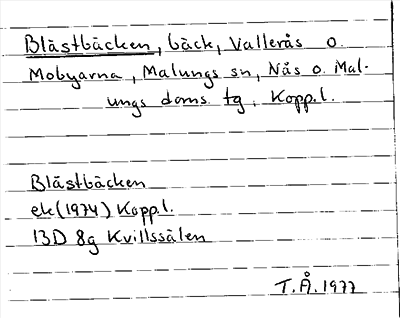 Blästbäcken, bäck, Vallerås o.
Mobyarna, Malungs sn, Nås o. Mal-
ungs doms. tg, Kopp.l.
Blästbäcken
ek(1974) Kopp.l.
13D 8g Kvillssälen
T.Å.1977